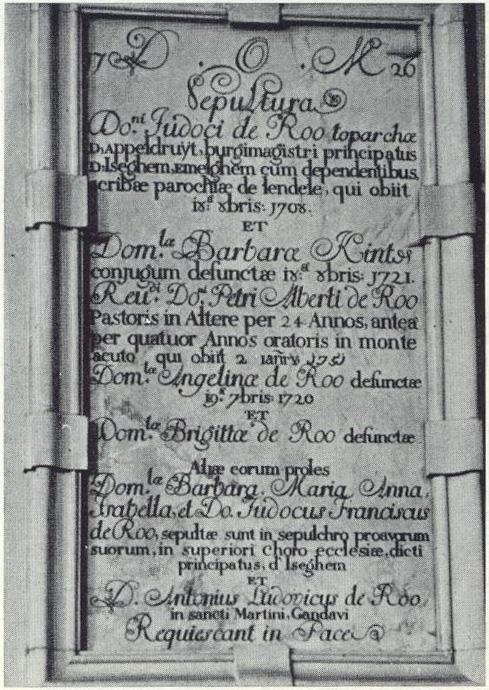 17 D . O . M 26
Sepultura
Do.ni Judoci de Roo toparchæ
D'Appeldruyt, burgimagistri principatus
D'Iseghem, Emelghem cum dependentibus,
scribæ parochiæ de lendele, qui obiit
18.a 8bris: 1708.
ET
Dom.læ Barbaræ Kintos
conjugum defunctæ 18.a 8bris: 1721.
Reu.di Do.ni Petri Alberti de Roo
Pastoris in Altere per 24 Annos, antea
per quatuor Annos oratoris in monte
acuto qui obiit 2 ianry 1751
Dom.læ Angelinæ de Roo defunctæ
19.a 7bris: 1720
ET
Dom.læ Brigittæ de Roo defunctæ
Aliæ eorum proles
Dom.læ Barbara, Maria Anna,
Isabella, et Do. Judocus Franciscus
de Roo, sepultæ sunt in sepulchro proavorum
suorum, in superiori choro ecclesiæ, dicti
principatus, d'Iseghem
ET
D. Antonius Ludovicus de Roo
in sancti Martini, Gandavi
Requiescant in Pace